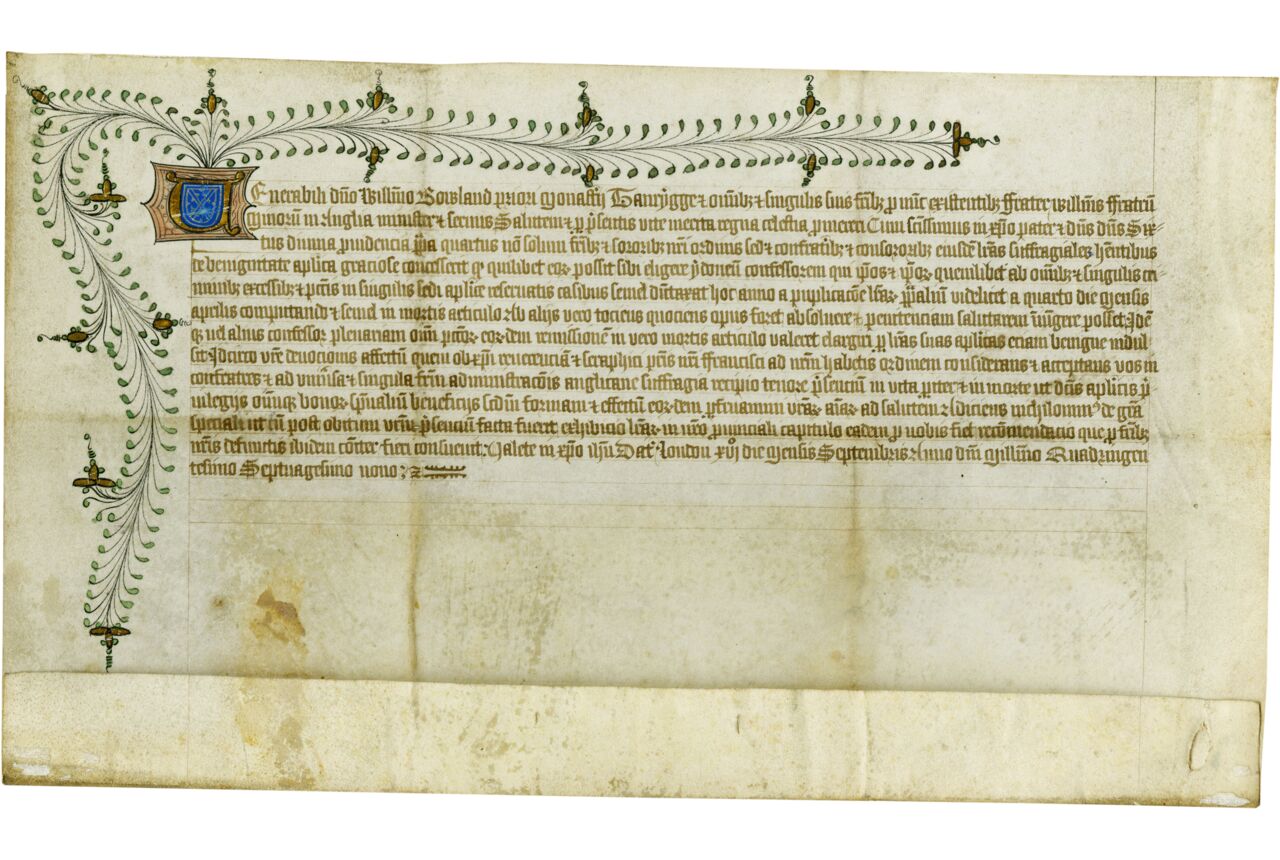 Venerabili dño Willmõ Rowland priori Monastii Tanrygge & oĩnibꝫ & singulis suis frĩbꝫ p nũc existentibꝫ ffrater Willmũs ffratrũ
Minorum in Anglia minister & servus Salutem & p p̃sentis vite merita regna celestia p̃mereri Cum sc̃issimus in xp̃o pater & dñs dñs Six
tus divina p̃videncia p̃pa quartus nõ solum frĩbꝫ & sororibꝫ nr̃i ordinis sed & confratribꝫ & consororibꝫ eiusdem lr̃as suffragiales hẽntibus
de benignitate ap̃lica graciose concesserit qᷓ quilibet eoꝝ possit sibi eligere ydoneũ confessorem qui ip̃os & ip̃oꝝ quemlibet ab oĩnibꝫ & singulis cri
minibꝫ excessibꝫ & pc̃cis in singulis sedi ap̃lice reservatis casibus semel dũtaxat hoc anno a puplicacõe lr̃aꝝ p̃aliũ videlicet a quarto die Mensis
aprilis computando & semel in mortis articulo ab aliis vero tociens quociens opus foret absolvere & penitenciam salutarem iniũgere posset Idẽ
qꝫ vel alius confessor plenariam oĩm pc̃coꝝ eoꝝdem remissionẽ in vero mortis articulo valeret elargiri p lr̃as suas ap̃licas eciam benigne indul
sit Idcirco vr̃e devocionis affectũ quem ob xp̃i reverenciã & seraphici p̃tris nr̃i Francisci ad nr̃m habetis ordinem considerans & acceptans vos in
confratres & ad univr̃sa & singula fr̃m administracõis anglicane suffragia recipio tenore p̃senciũ in vita pariter & in morte ut dictis ap̃licis p̃
vilegiis oĩmqꝫ bonoꝝ sp̃ualium beneficiis sc̃dm formam & effectũ eoꝝdem p̃fruamini vr̃aꝝ aĩaꝝ ad salutem Adiciens nichilominus de gr̃a
speciali ut cũ post obitum vr̃m p̃senciũ facta fuerit exhibicio lr̃aꝝ in nr̃o p̃vinciali capitulo eadem p vobis fiet recõmendacio que p frĩbꝫ
nr̃is defunctis ibidem cõiter fieri consuevit Valete in xp̃o ihũ Datꝭ London xvj die Mensis Septembris Anno dñi Millimõ Quadringen
tesimo Septuagesimo nono